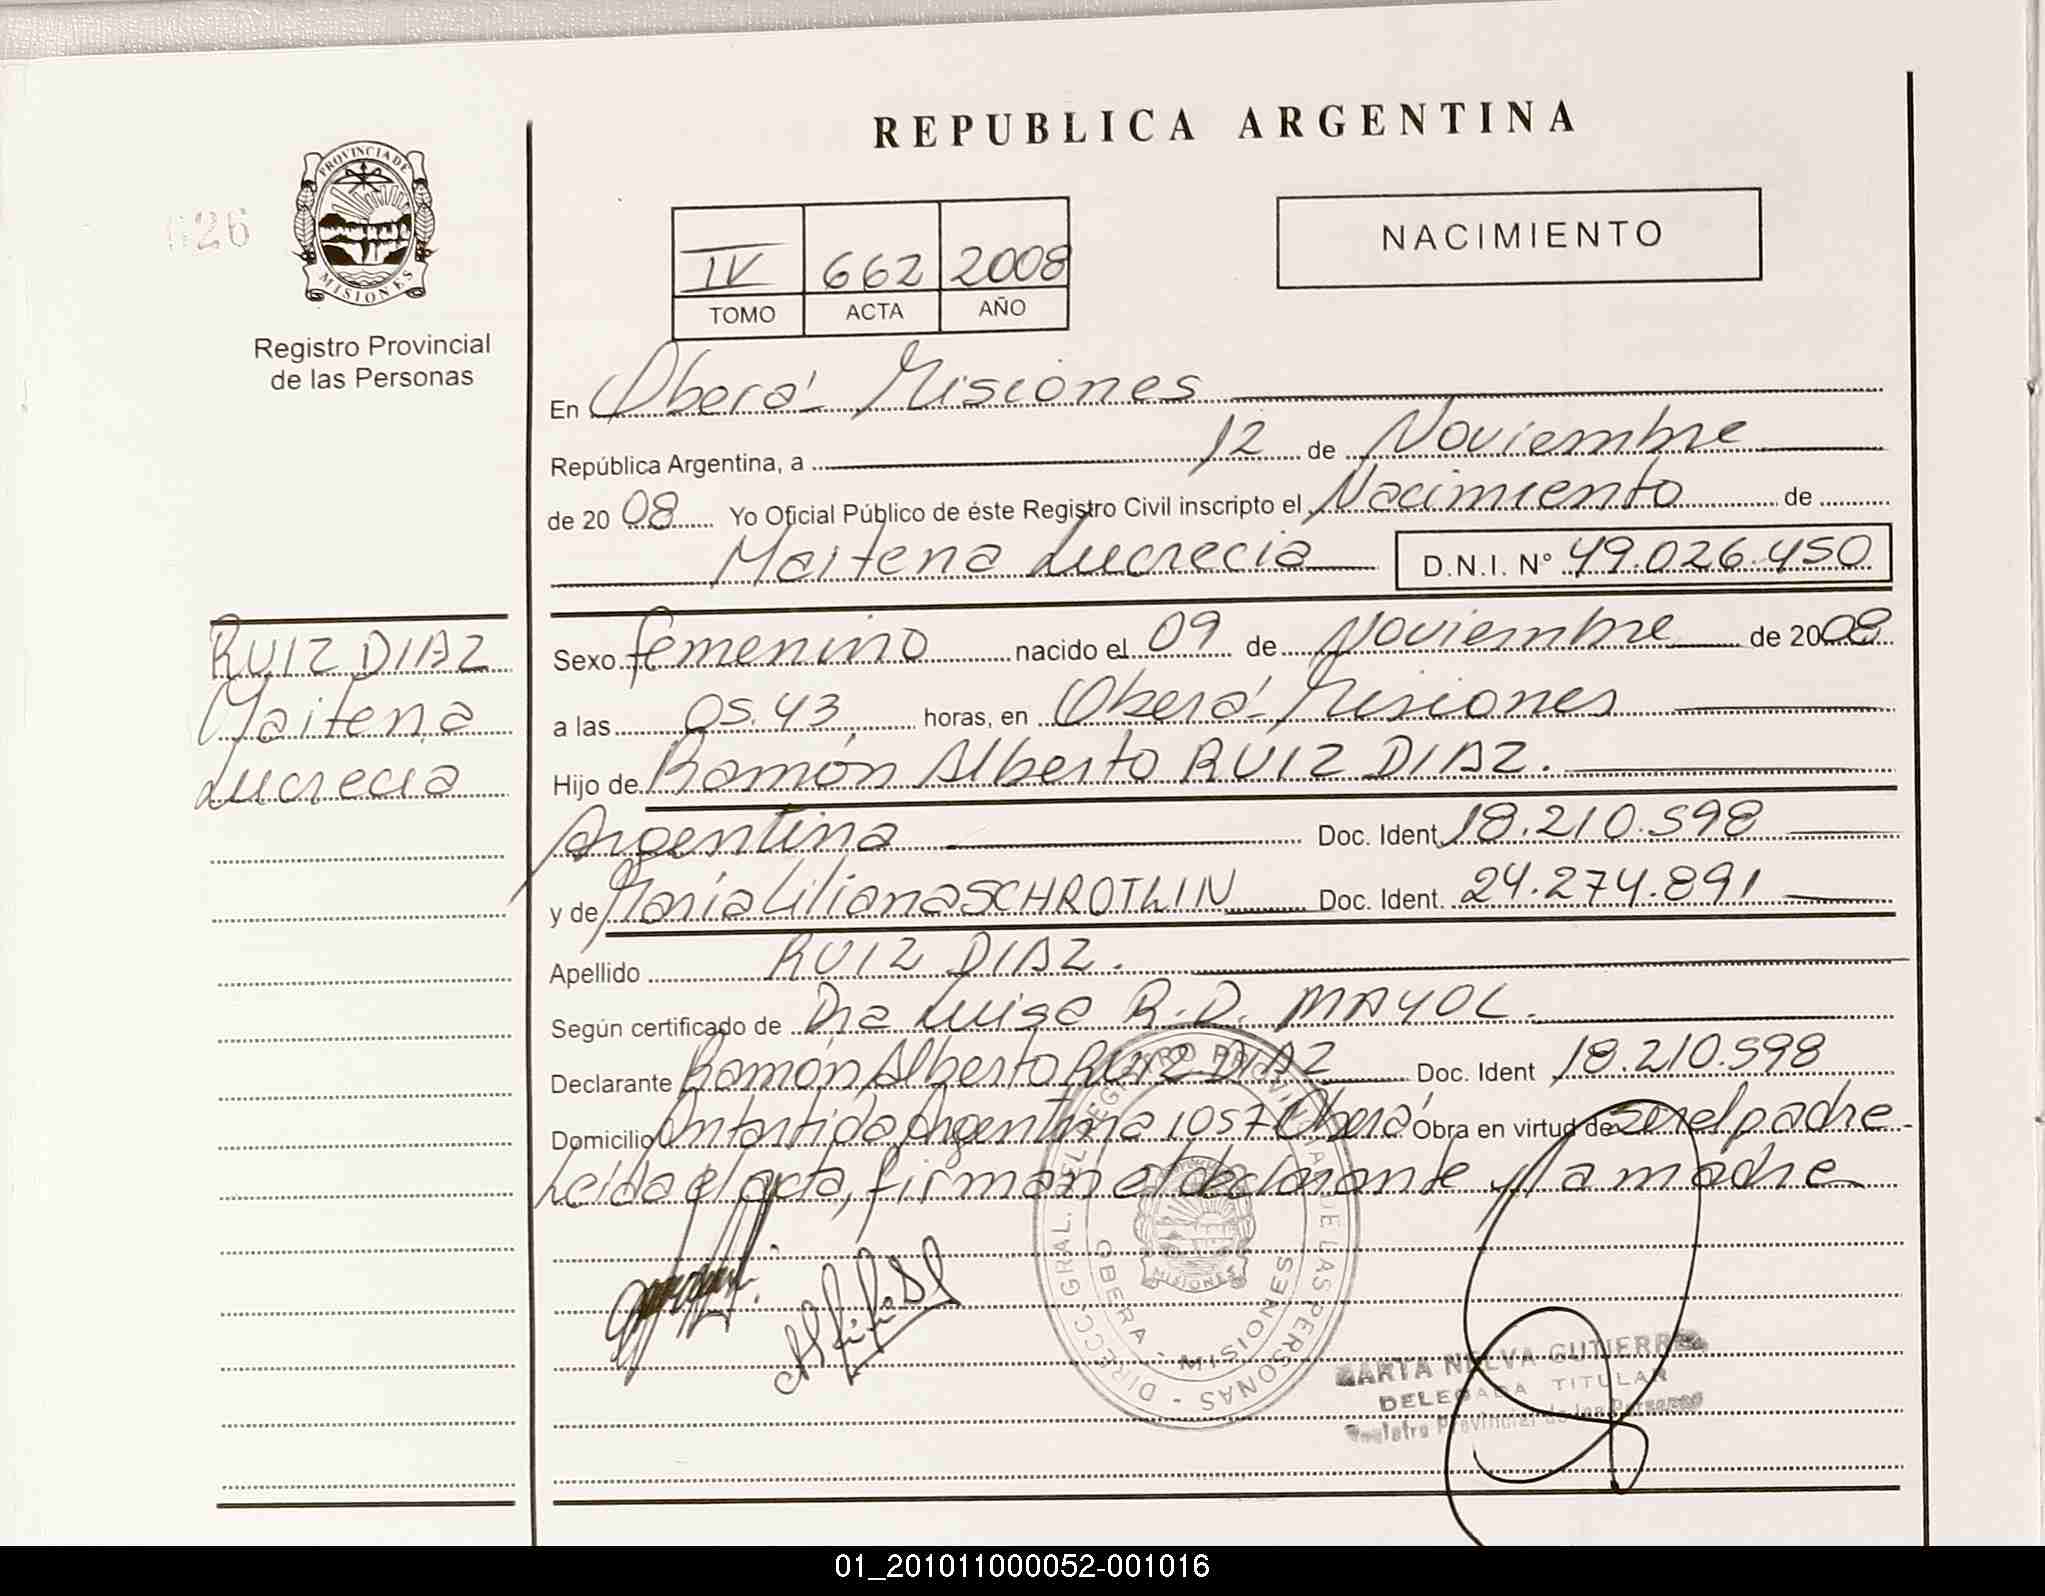 REPUBLICA ARGENTINA
PROVINCIA DE MISIONES
026
Registro Provincial
de las Personas
NACIMIENTO
IV 662 2008
TOMO ACTA AÑO
En Oberá Misiones
República Argentina, a 12 de Noviembre
de 2008 Yo Oficial Público de éste Registro Civil inscripto el Nacimiento de
Maitena Lucrecia D.N.I. Nº 49.026.450
RUIZ DIAZ
Maitena
Lucrecia
Sexo femenino nacido el 09 de Noviembre de 2008
a las 05.43 horas, en Oberá Misiones
Hijo de Ramón Alberto RUIZ DIAZ.
Argentina Doc. Ident. 18.210.598
y de María Liliana SCHROTLIN Doc. Ident. 24.274.891
Apellido RUIZ DIAZ.
Según certificado de Dra Luisa R.D. MAYOL.
Declarante Ramón Alberto RUIZ DIAZ Doc. Ident 18.210.598
Domicilio Antartida Argentina 1057 Oberá Obra en virtud de ser el padre
Leída el acta, firman el declarante y la madre
DIRECC. GRAL. DEL REGISTRO PROVINCIAL DE LAS PERSONAS
OBERA - MISIONES
MISIONES
MARTA NELVA GUTIERREZ
DELEGADA TITULAR
Registro Provincial de las Personas
01_201011000052-001016